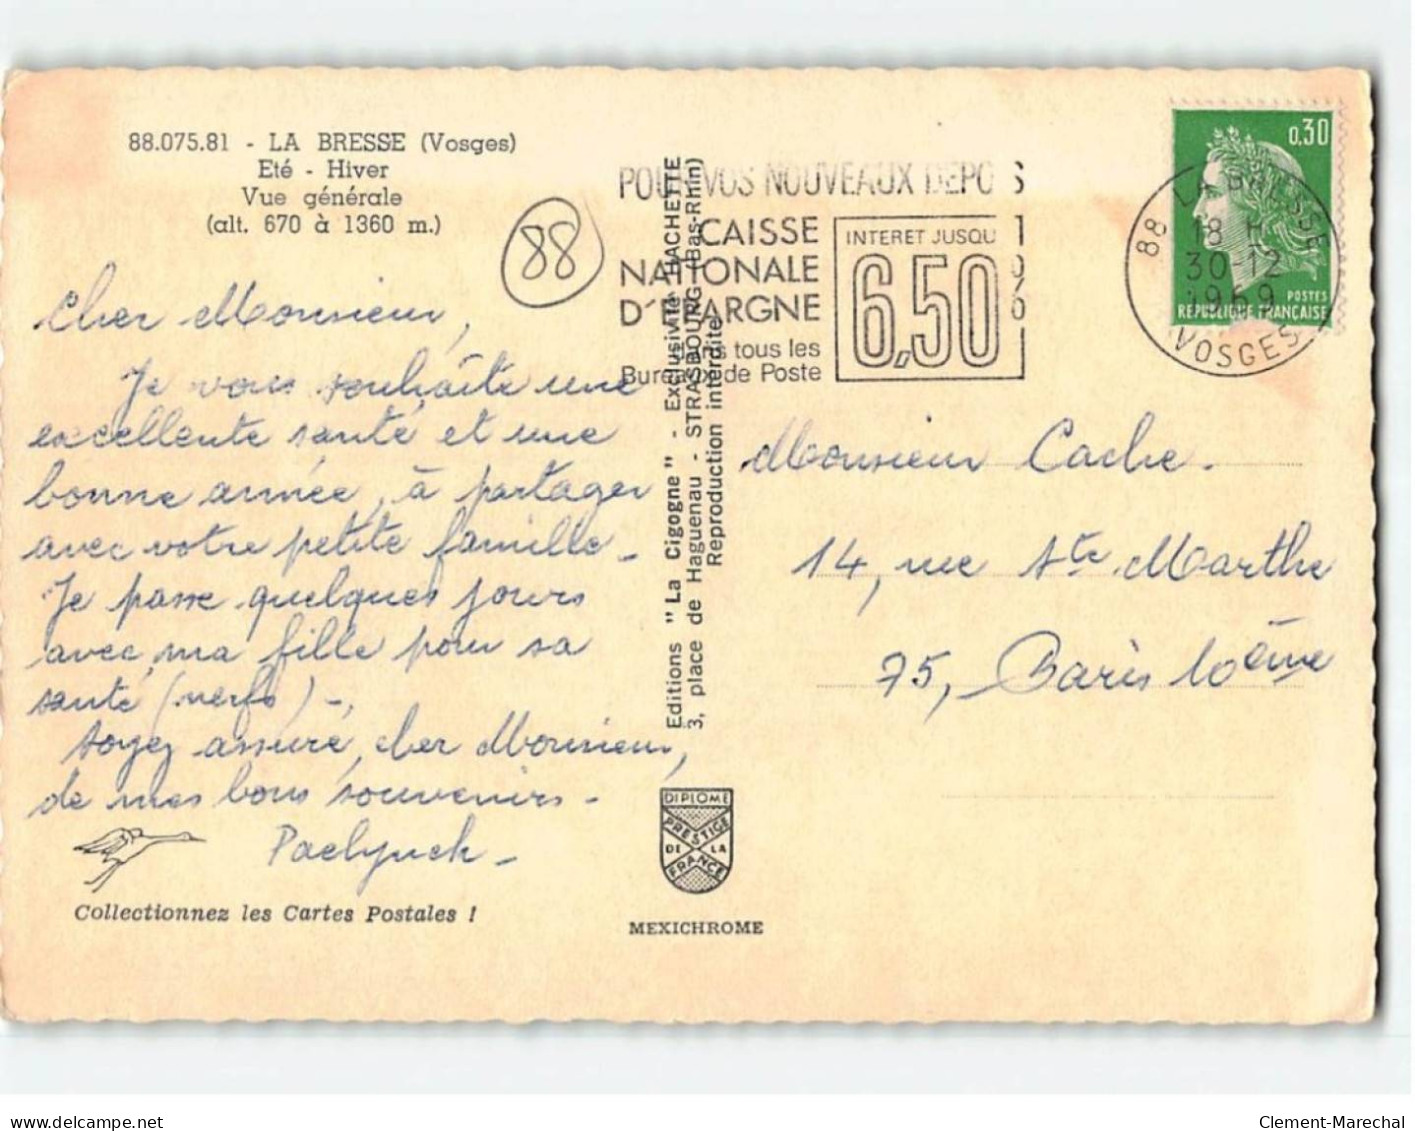 88.075.81 - LA BRESSE (Vosges)
Eté - Hiver
Vue générale
(alt. 670 à 1360 m.)
88
Cher Monsieur,
Je vous souhaite une
excellente santé et une
bonne année, à partager
avec votre petite famille -
Je passe quelques jours
avec ma fille pour sa
santé (nerfs) -,
Soyez assuré, cher Monsieur,
de mes bons souvenirs -
Paelynck -
Collectionnez les Cartes Postales !
Editions "La Cigogne" - Exclusivité HACHETTE
3, place de Haguenau - STRASBOURG (Bas-Rhin)
Reproduction interdite
DIPLOME
PRESTIGE
DE LA
FRANCE
MEXICHROME
POUR VOS NOUVEAUX DEPOTS
CAISSE
NATIONALE
D'EPARGNE
dans tous les
Bureaux de Poste
INTERET JUSQU'
6,50
%
88 LA BRESSE
18 H
30-12
1969
VOSGES
0,30
POSTES
REPUBLIQUE FRANÇAISE
Monsieur Cache.
14, rue Ste Marthe
75, - Paris 10ème
Clement-Marechal